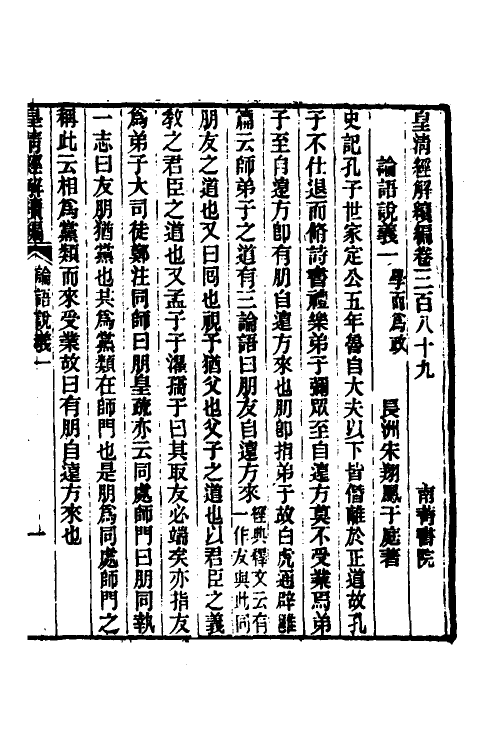 皇清經解續編卷三百八十九　南菁書院
論語說義一　學而爲政　長洲朱翔鳳于庭著
史記孔子世家定公五年魯自大夫以下皆僭離於正道故孔
子不仕退而脩詩書禮樂弟子彌眾至自遠方莫不受業焉弟
子至自遠方卽有朋自遠方來也朋卽指弟子故白虎通辟雍
篇云師弟子之道有三論語曰朋友自遠方來經典釋文云有一作友與此同
朋友之道也又曰回也視予猶父也父子之道也以君臣之義
教之君臣之道也又孟子子濯孺子曰其取友必端矣亦指友
爲弟子大司徒鄭注同師曰朋皇疏亦云同處師門曰朋同執
一志曰友朋猶黨也其爲黨類在師門也是朋爲同處師門之
稱此云相爲黨類而來受業故曰有朋自遠方來也
皇清經解續編　論語說義一　一